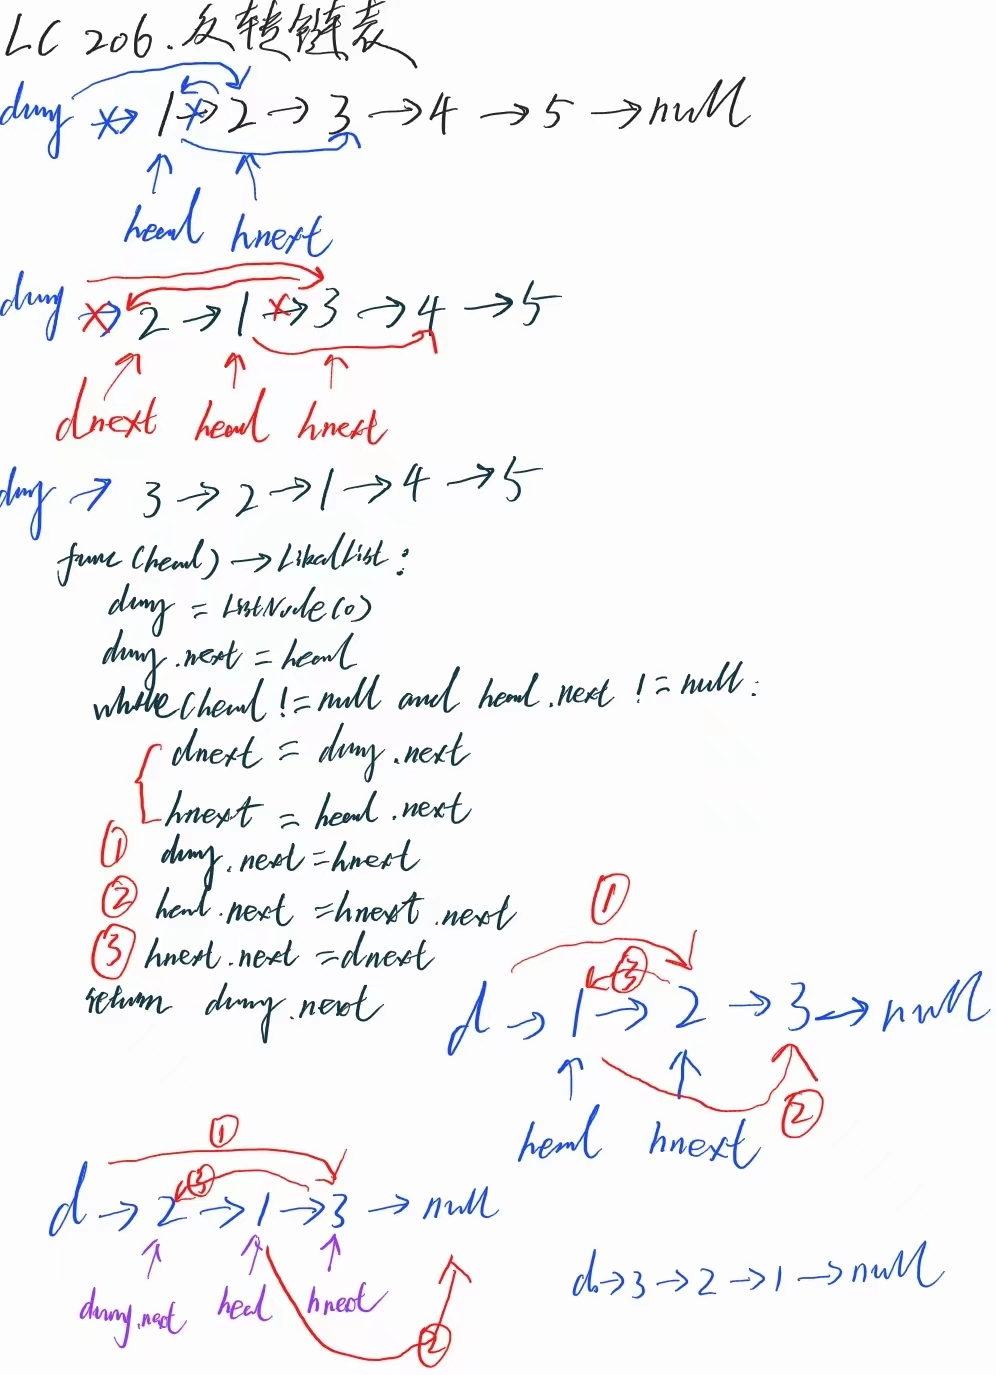 LC 206.反转链表
dumy → 1 → 2 → 3 → 4 → 5 → null
head hnext
dumy → 2 → 1 → 3 → 4 → 5
dnext head hnext
dumy → 3 → 2 → 1 → 4 → 5
func(head) → LikedList:
dumy = ListNode(0)
dumy.next = head
while(head != null and head.next != null:
dnext = dumy.next
hnext = head.next
① dumy.next = hnext
② head.next = hnext.next
③ hnext.next = dnext
return dumy.next
①
③
d → 1 → 2 → 3 → null
head hnext ②
①
③
d → 2 → 1 → 3 → null
dumy.next head hnext
②
d → 3 → 2 → 1 → null